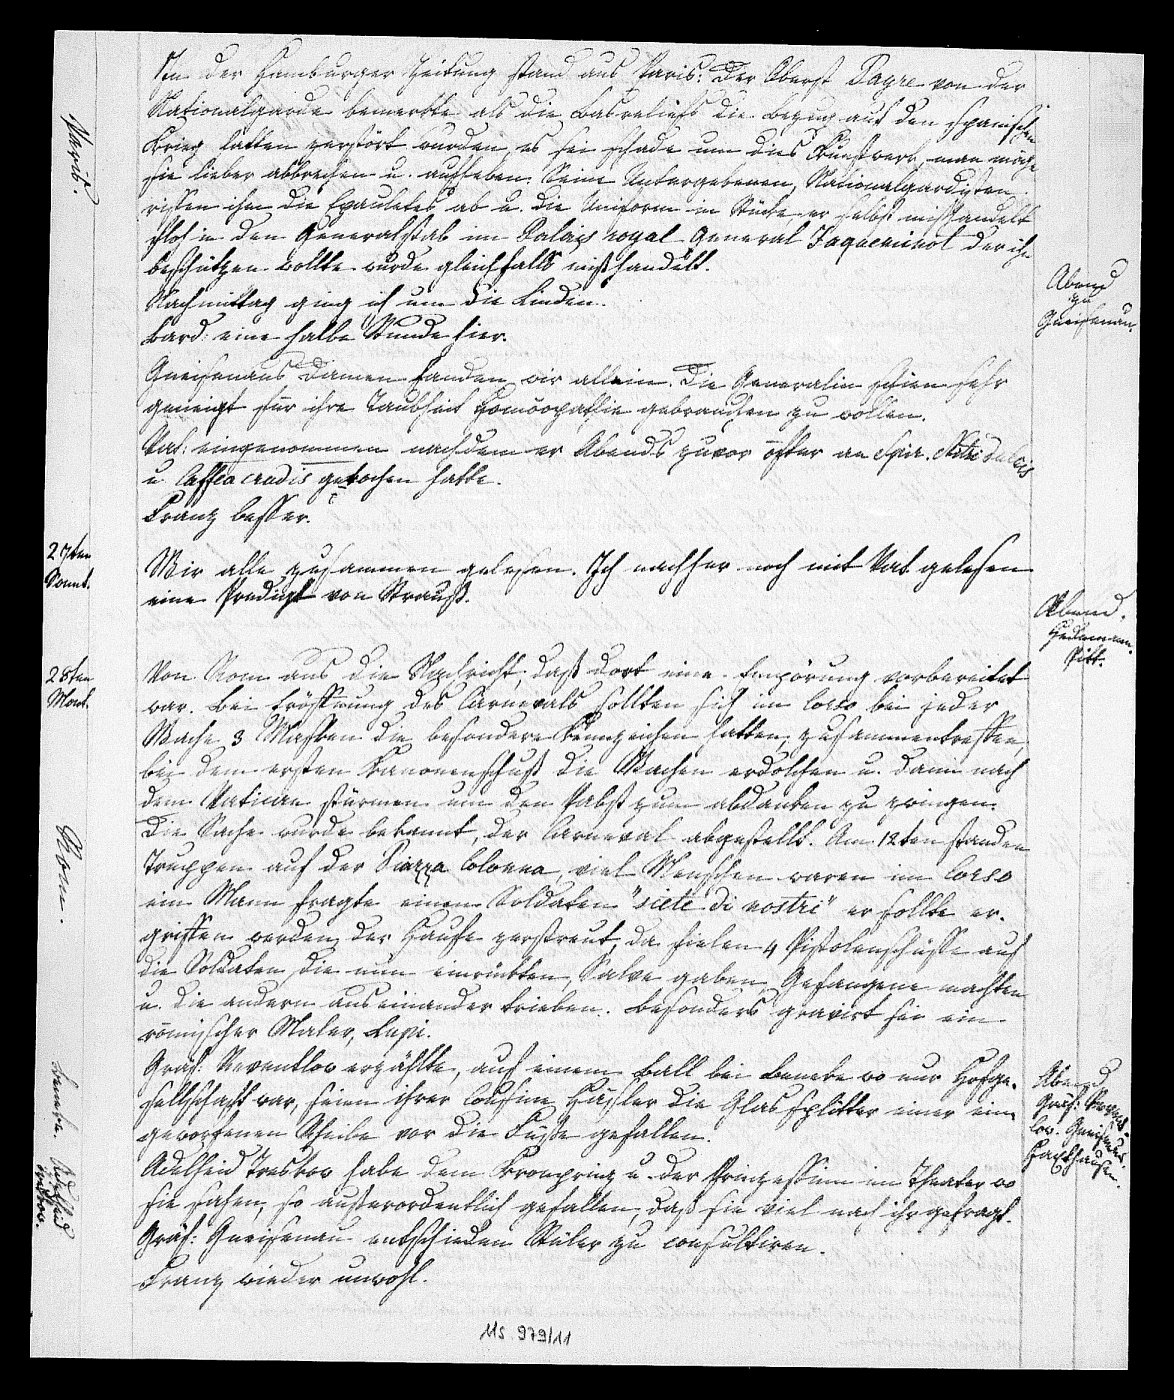 In der Hamburger Zeitung stand aus Paris: Der Oberst Payre von der
Nationalgarde bemerkte als die Basreliefs die Bezug auf den Spanischen
Krieg hatten zerstört wurden, es sei schade um dies Kunstwerk, man möge
sie lieber abbrechen u. aufheben. Seine Untergebenen, Nationalgardisten
rissen ihm die Epaulets ab u. die Uniform in Stücke er selbst mißhandelt
floh in den Generalstab im Palais royal General Jaqueminot der ihn
beschützen wollte wurde gleichfalls mißhandelt.
Nachmittag ging ich um die Linden.
Bard: eine halbe Stunde hier.
Gneisenaus Damen fanden wir allein. Die Generalin schien sehr
geneigt für ihre Taubheit Homöopathie gebrauchen zu wollen.
Vat: eingenommen nachdem er Abends zuvor öfter an Spir. Nitri dulcis
u Caffea crudis gerochen hatte.
Franz besser.
Wir alle zusammen gelesen. Ich nachher noch mit Vat gelesen
eine Predigt von Strauß.
Von Rom aus die Nachricht, daß dort eine Empörung vorbereitet
war. Bei Eröffnung des Carnevals sollten sich im Corso bei jeder
Wache 3 Masken die besondere Kennzeichen hatten, zusammentreffen
bei dem ersten Kanonenschuß die Wachen erdolchen u. dann nach
dem Vatican stürmen um den Pabst zum abdanken zu zwingen.
Die Sache wurde bekannt, der Carneval abgestellt. Am 12ten standen
Truppen auf der Piazza Colonna, viel Menschen waren im Corso
ein Mann fragte einen Soldaten "siete di nostri" er sollte er-
griffen werden, der Haufe zerstreut, da fielen 4 Pistolenschüsse auf
die Soldaten, die nun einrückten, Salve gaben, Gefangene machten
u. die andern auseinander trieben. Besonders gravirt sei ein
römischer Maler, Lupi.
Gräf: Reventlov erzählte, auf einem Ball bei Beneke wo nur Hofge-
sellschaft war, seien ihrer Cousine Hassler die Glassplitter einer ein
geworfenen Scheibe vor die Füße gefallen.
Adelheid Treskow habe dem Kronprinz u. der Prinzessinn im Theater wo
sie sahen, so außerordentlich gefallen, daß sie viel nach ihr gefragt.
Gräf: Gneisenau entschieden Stüler zu consultiren.
Franz wieder unwohl.
Paris.
27ten
Sonnt.
28ten
Mont.
Rom.
Beneke. Adelheid
Treskow.
Abend
zu
Gneisenau.
Abend.
Hedemann.
Pitt.
Abend,
Gräf: Revent-
lov. Gneisenau.
Haxthausen.
MS 979/11